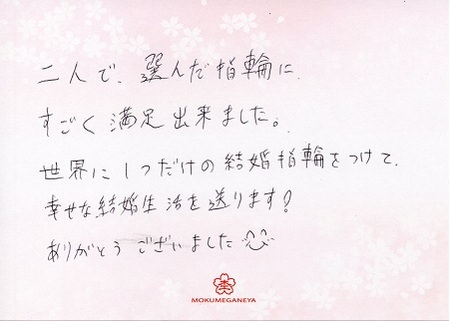 二人で、選んだ指輪に、
すごく満足出来ました。
世界に1つだけの結婚指輪をつけて、
幸せな結婚生活を送ります!
ありがとうございました
MOKUMEGANEYA